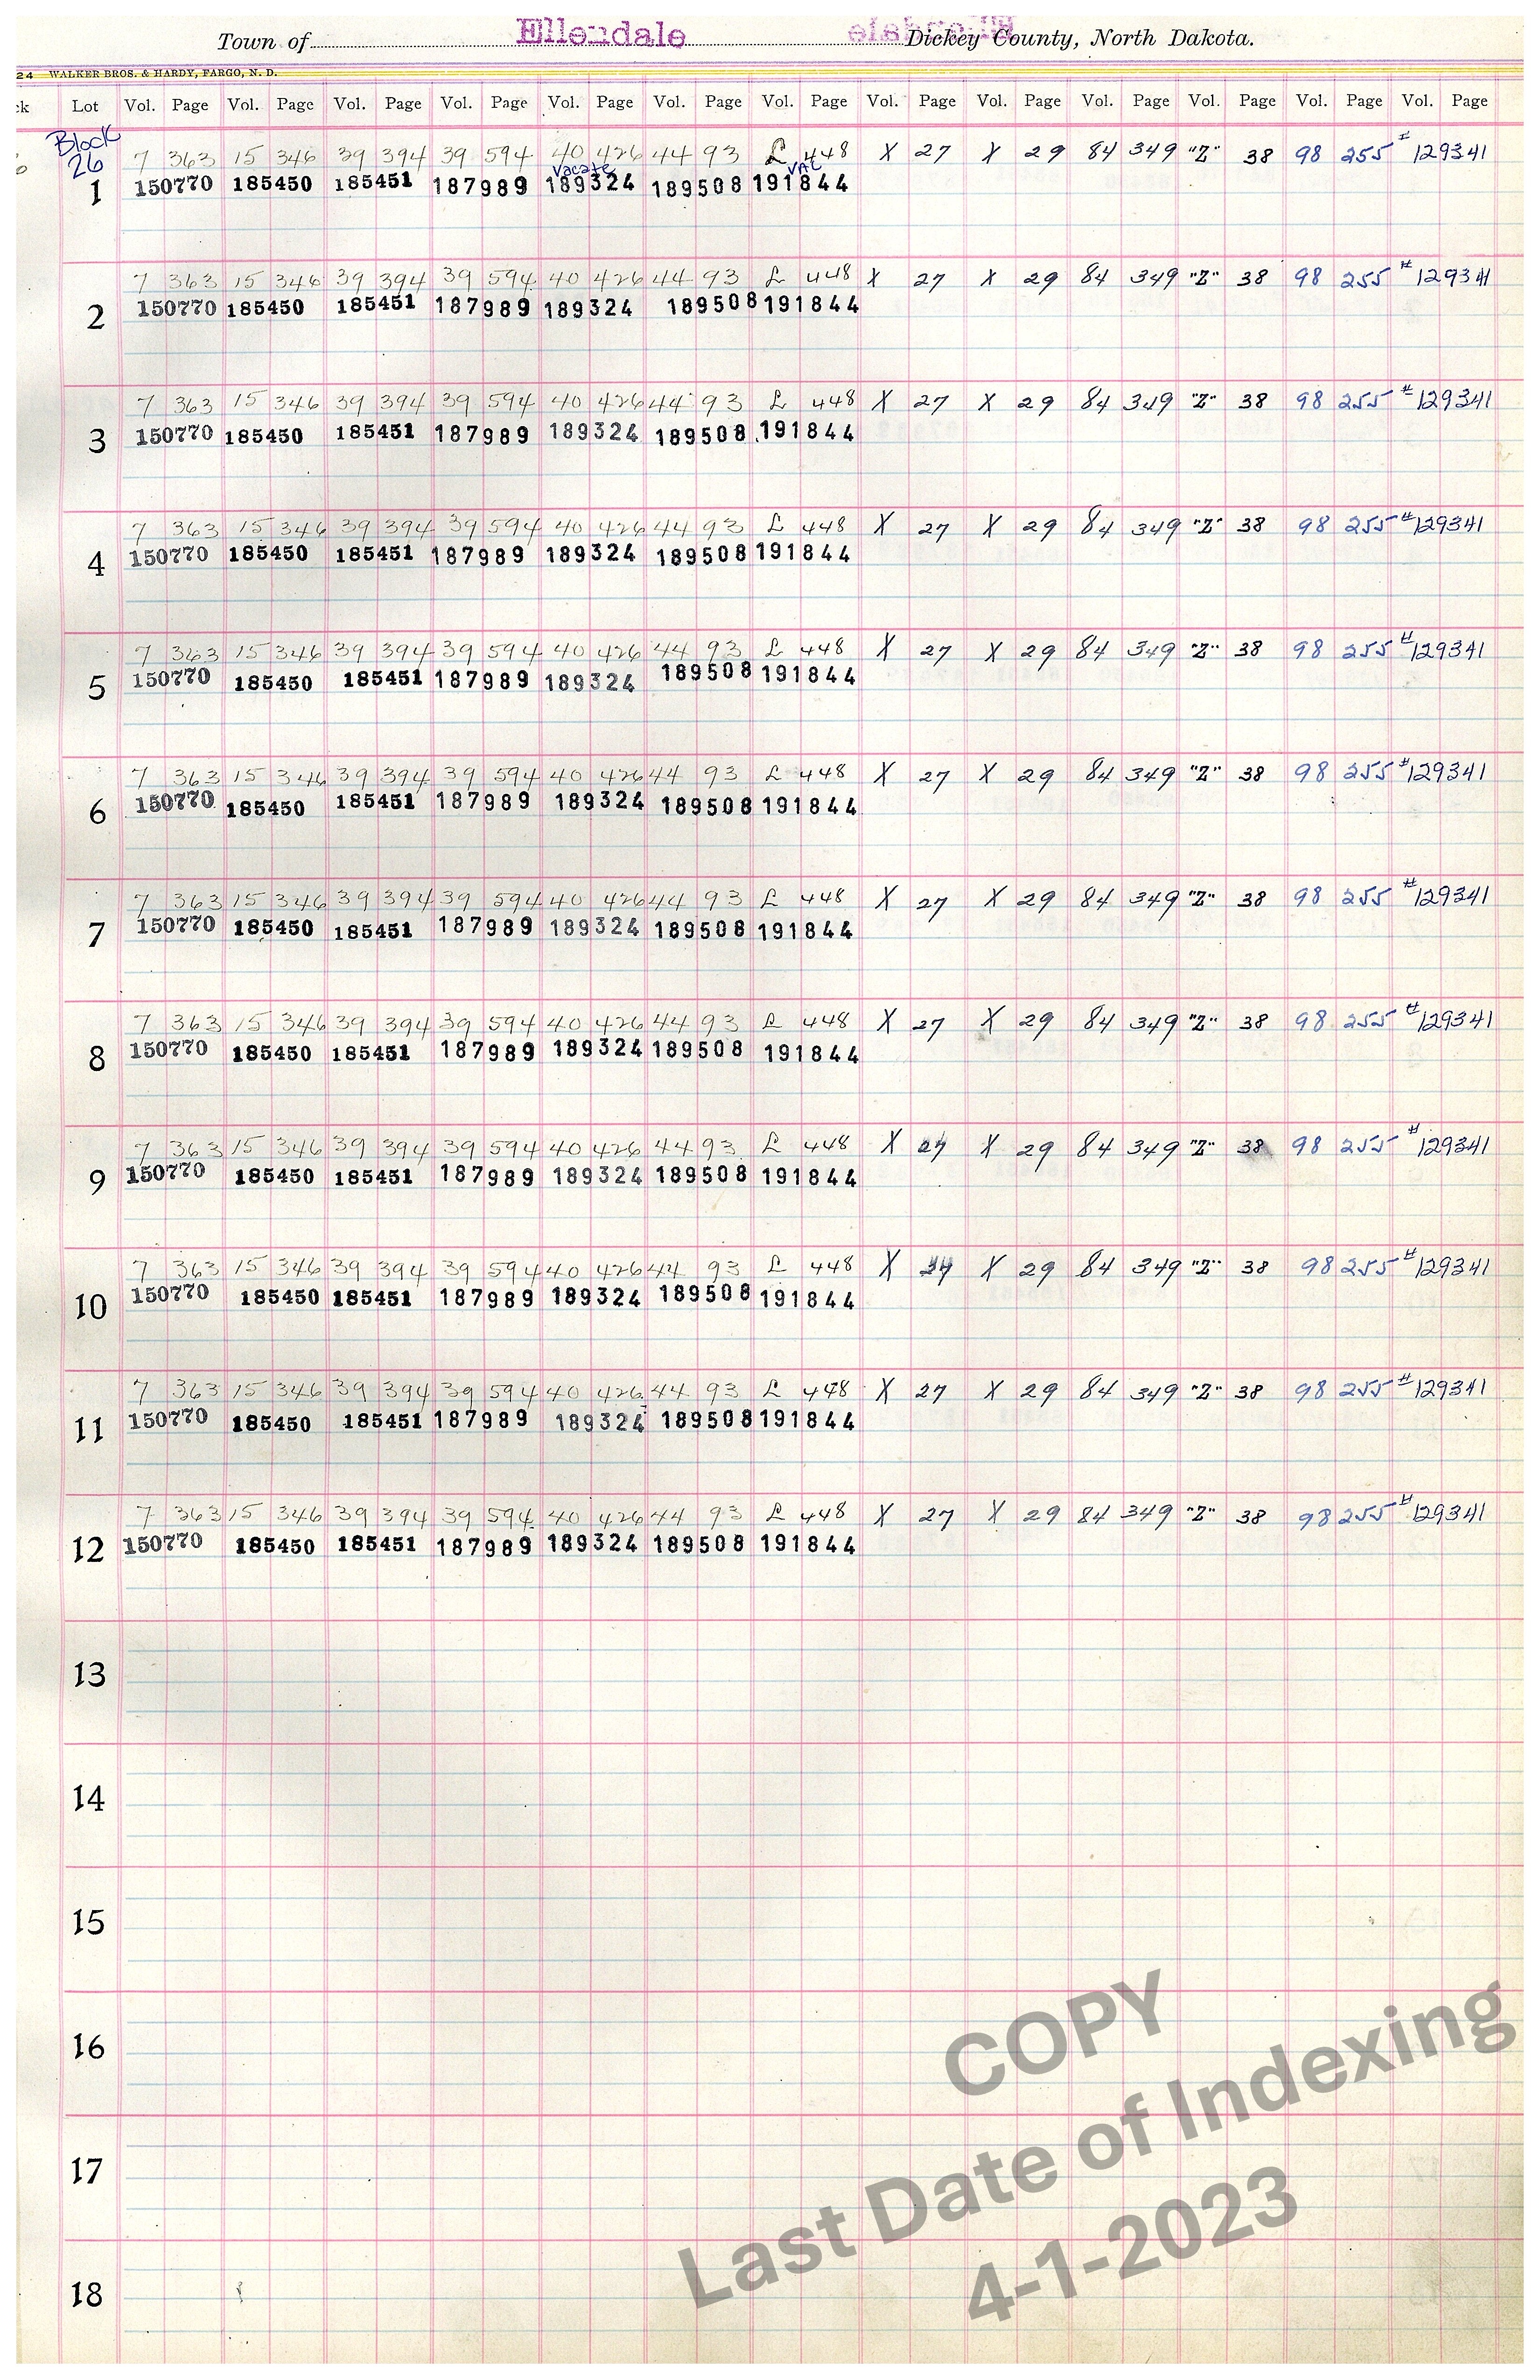 Town of Ellendale Dickey County, North Dakota.
24 WALKER BROS. & HARDY, FARGO, N. D.
ck Lot Vol. Page Vol. Page Vol. Page Vol. Page Vol. Page Vol. Page Vol. Page Vol. Page Vol. Page Vol. Page Vol. Page Vol. Page Vol. Page
Block
26 7 363 15 346 39 394 39 594 40 426 44 93 L 448 X 27 X 29 84 349 "Z" 38 98 255 # 129341
vacate VAC
1 150770 185450 185451 187989 189324 189508 191844
7 363 15 346 39 394 39 594 40 426 44 93 L 448 X 27 X 29 84 349 "Z" 38 98 255 # 129341
2 150770 185450 185451 187989 189324 189508 191844
7 363 15 346 39 394 39 594 40 426 44 93 L 448 X 27 X 29 84 349 "Z" 38 98 255 # 129341
3 150770 185450 185451 187989 189324 189508 191844
7 363 15 346 39 394 39 594 40 426 44 93 L 448 X 27 X 29 84 349 "Z" 38 98 255 # 129341
4 150770 185450 185451 187989 189324 189508 191844
7 363 15 346 39 394 39 594 40 426 44 93 L 448 X 27 X 29 84 349 "Z" 38 98 255 # 129341
5 150770 185450 185451 187989 189324 189508 191844
7 363 15 346 39 394 39 594 40 426 44 93 L 448 X 27 X 29 84 349 "Z" 38 98 255 # 129341
6 150770 185450 185451 187989 189324 189508 191844
7 363 15 346 39 394 39 594 40 426 44 93 L 448 X 27 X 29 84 349 "Z" 38 98 255 # 129341
7 150770 185450 185451 187989 189324 189508 191844
7 363 15 346 39 394 39 594 40 426 44 93 L 448 X 27 X 29 84 349 "Z" 38 98 255 # 129341
8 150770 185450 185451 187989 189324 189508 191844
7 363 15 346 39 394 39 594 40 426 44 93 L 448 X 27 X 29 84 349 "Z" 38 98 255 # 129341
9 150770 185450 185451 187989 189324 189508 191844
7 363 15 346 39 394 39 594 40 426 44 93 L 448 X X 29 84 349 "Z" 38 98 255 # 129341
10 150770 185450 185451 187989 189324 189508 191844
7 363 15 346 39 394 39 594 40 426 44 93 L 448 X 27 X 29 84 349 "Z" 38 98 255 # 129341
11 150770 185450 185451 187989 189324 189508 191844
7 363 15 346 39 394 39 594 40 426 44 93 L 448 X 27 X 29 84 349 "Z" 38 98 255 # 129341
12 150770 185450 185451 187989 189324 189508 191844
13
14
15
16
17
18
COPY
Last Date of Indexing
4-1-2023